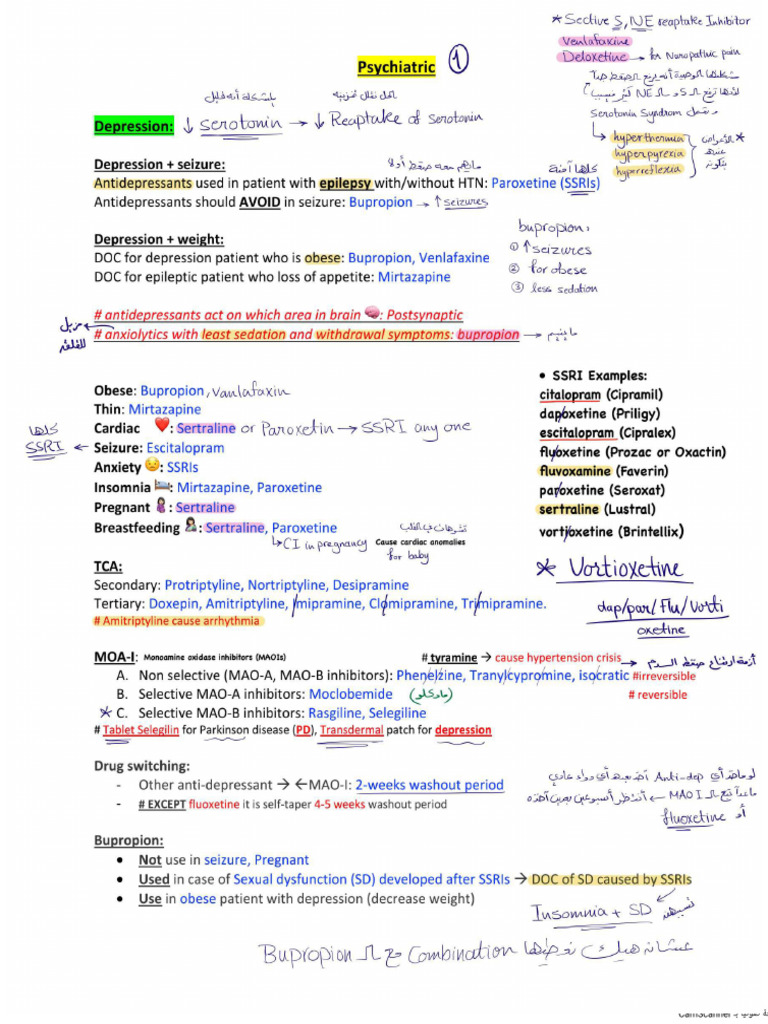 * Sective S, NE reaptake Inhibitor
Venlafaxine
Deloxetine → for Neuropathic pain
Psychiatric 1
Serotonin Syndrom
hyperthermia
hyperpyrexia
hyperreflexia
Depression: ↓ serotonin → ↓ Reaptake of serotonin
Depression + seizure:
Antidepressants used in patient with epilepsy with/without HTN: Paroxetine (SSRIs)
Antidepressants should AVOID in seizure: Bupropion → ↑ seizures
Depression + weight:
DOC for depression patient who is obese: Bupropion, Venlafaxine
DOC for epileptic patient who loss of appetite: Mirtazapine
bupropion:
① ↑ seizures
② for obese
③ less sedation
# antidepressants act on which area in brain 🧠: Postsynaptic
# anxiolytics with least sedation and withdrawal symptoms: bupropion →
Obese: Bupropion, Vanlafaxin
Thin: Mirtazapine
Cardiac ❤️: Sertraline or Paroxetin → SSRI any one
كلها SSRI ← Seizure: Escitalopram
Anxiety 😟: SSRIs
Insomnia 🛏️: Mirtazapine, Paroxetine
Pregnant 🤰: Sertraline
Breastfeeding 🤱: Sertraline, Paroxetine
↳ CI in pregnancy Cause cardiac anomalies
for baby
• SSRI Examples:
citalopram (Cipramil)
dapoxetine (Priligy)
escitalopram (Cipralex)
fluoxetine (Prozac or Oxactin)
fluvoxamine (Faverin)
paroxetine (Seroxat)
sertraline (Lustral)
vortioxetine (Brintellix)
* Vortioxetine
dap/par/flu/vorti
oxetine
TCA:
Secondary: Protriptyline, Nortriptyline, Desipramine
Tertiary: Doxepin, Amitriptyline, Imipramine, Clomipramine, Trimipramine.
# Amitriptyline cause arrhythmia
MOA-I: Monoamine oxidase inhibitors (MAOIs) # tyramine → cause hypertension crisis → أزمة ارتفاع ضغط الدم
A. Non selective (MAO-A, MAO-B inhibitors): Phenelzine, Tranylcypromine, isocratic #irreversible
B. Selective MAO-A inhibitors: Moclobemide # reversible
* C. Selective MAO-B inhibitors: Rasgiline, Selegiline
# Tablet Selegilin for Parkinson disease (PD), Transdermal patch for depression
Drug switching:
- Other anti-depressant → ←MAO-I: 2-weeks washout period
- # EXCEPT fluoxetine it is self-taper 4-5 weeks washout period
fluoxetine
Bupropion:
• Not use in seizure, Pregnant
• Used in case of Sexual dysfunction (SD) developed after SSRIs → DOC of SD caused by SSRIs
• Use in obese patient with depression (decrease weight)
Insomnia + SD
عشان هيك نعطيها Combination مع الـ Bupropion
CamScanner